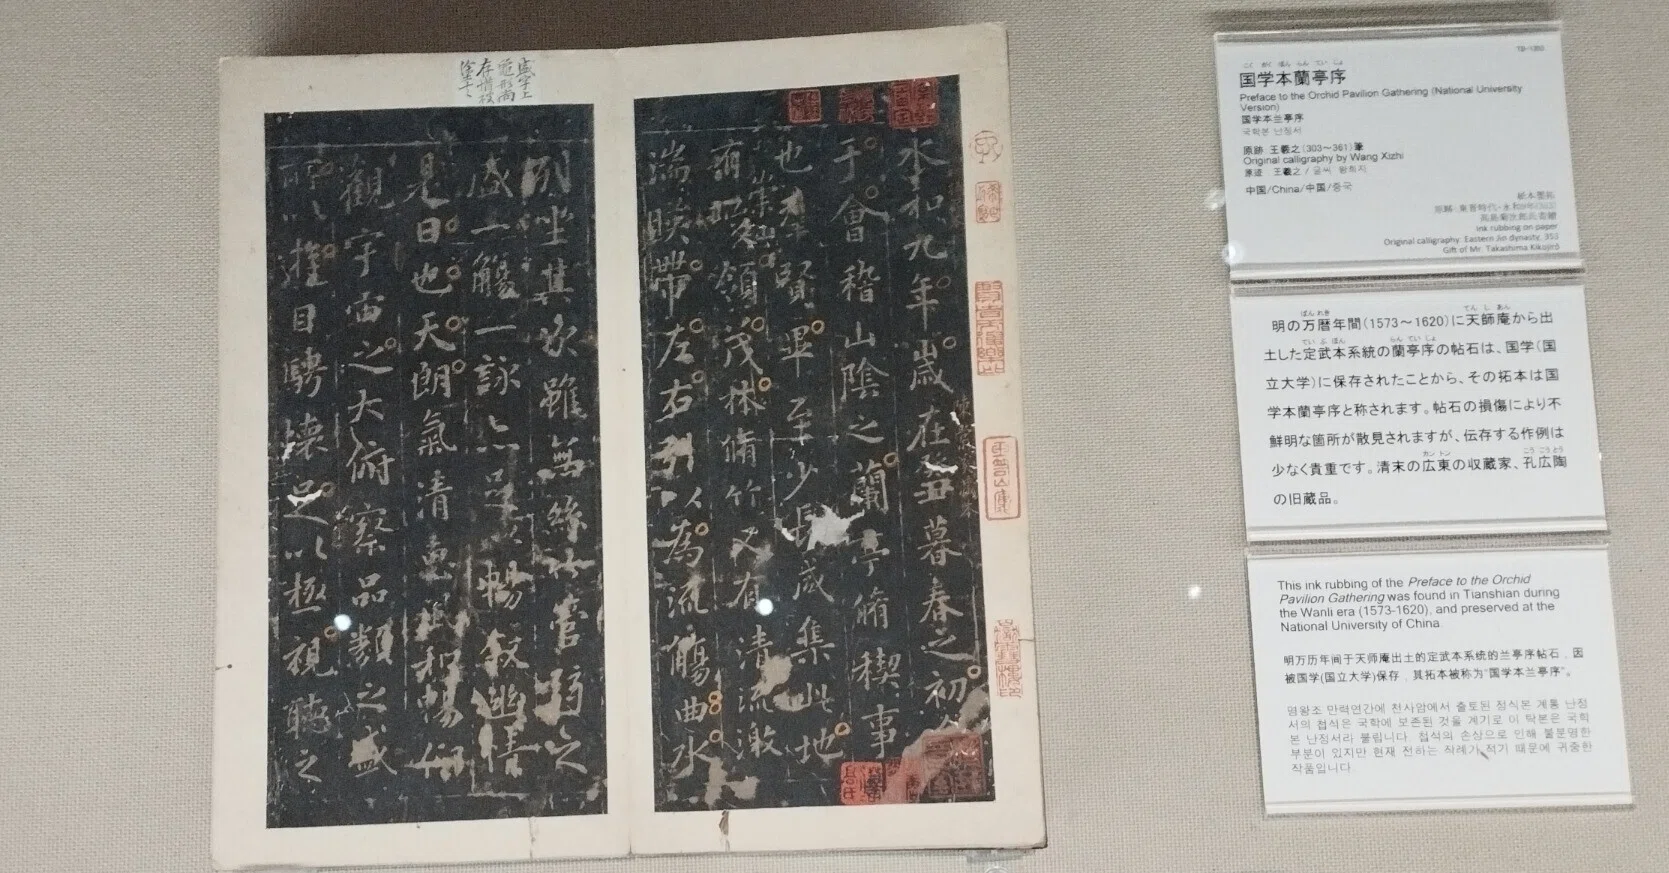 永和九年歲在癸丑暮春之初會
于會稽山陰之蘭亭脩稧事
也羣賢畢至少長咸集此地
有崇山峻領茂林脩竹又有清流激
湍暎帶左右引以為流觴曲水
列坐其次雖無絲竹管弦之
盛一觴一詠亦足以暢敘幽情
是日也天朗氣清惠風和暢仰
觀宇宙之大俯察品類之盛
所以遊目騁懷足以極視聽之
盛字上
龜形尚
こく がく ほん らん てい じょ
国学本蘭亭序
Preface to the Orchid Pavilion Gathering (National University
Version)
国学本兰亭序
국학본 난정서
原跡 王羲之(303～361)筆
Original calligraphy by Wang Xizhi
原迹 王羲之 / 글씨 왕희지
中国/China/中国/중국
紙本墨拓
高島菊次郎氏寄贈
Ink rubbing on paper
Original calligraphy: Eastern Jin dynasty, 353
Gift of Mr. Takashima Kikujirō
ばんれき てんしあん
明の万暦年間(1573～1620)に天師庵から出
ていぶほん らんていじょ
土した定武本系統の蘭亭序の帖石は、国学(国
立大学)に保存されたことから、その拓本は国
学本蘭亭序と称されます。帖石の損傷により不
鮮明な箇所が散見されますが、伝存する作例は
カントン こうこうとう
少なく貴重です。清末の広東の収蔵家、孔広陶
の旧蔵品。
This ink rubbing of the Preface to the Orchid
Pavilion Gathering was found in Tianshian during
the Wanli era (1573-1620), and preserved at the
National University of China.
明万历年间于天师庵出土的定武本系统的兰亭序帖石，因
被国学(国立大学)保存，其拓本被称为“国学本兰亭序”。
명왕조 만력연간에 천사암에서 출토된 정식본 계통 난정
서의 첩석은 국학에 보존된 것을 계기로 이 탁본은 국학
본 난정서라 불립니다. 첩석의 손상으로 인해 불분명한
부분이 있지만 현재 전하는 작례가 적기 때문에 귀중한
작품입니다.